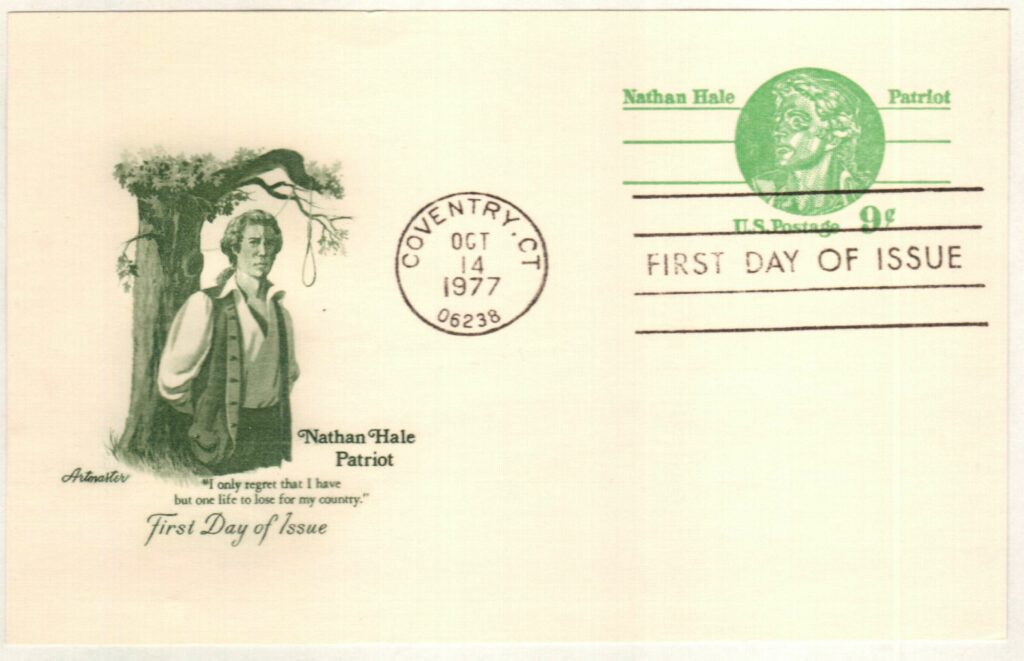 Nathan Hale Patriot
U.S. Postage 9¢
FIRST DAY OF ISSUE
COVENTRY, CT
OCT
14
1977
06238
Nathan Hale
Patriot
Artmaster
"I only regret that I have
but one life to lose for my country."
First Day of Issue